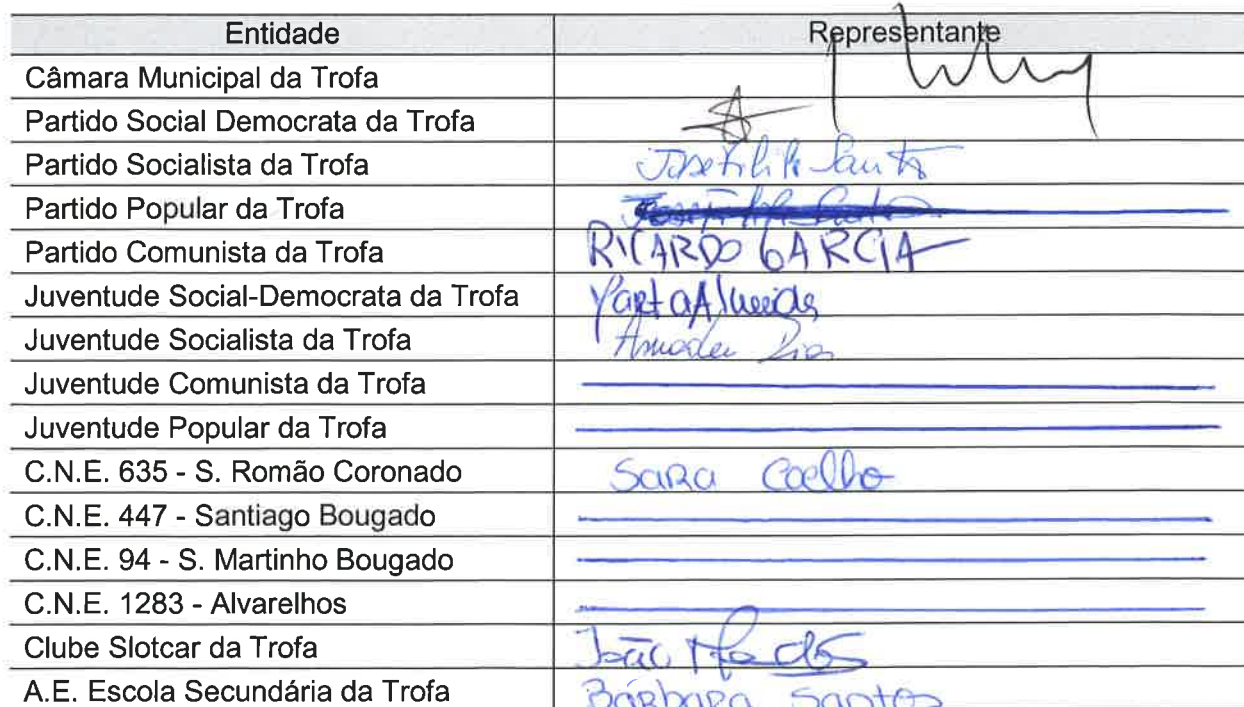 Entidade Representante
Câmara Municipal da Trofa
Partido Social Democrata da Trofa
Partido Socialista da Trofa José Filipe Santos
Partido Popular da Trofa
Partido Comunista da Trofa RICARDO GARCIA
Juventude Social-Democrata da Trofa Marta Almeida
Juventude Socialista da Trofa Amadeu Dias
Juventude Comunista da Trofa
Juventude Popular da Trofa
C.N.E. 635 - S. Romão Coronado Sara Coelho
C.N.E. 447 - Santiago Bougado
C.N.E. 94 - S. Martinho Bougado
C.N.E. 1283 - Alvarelhos
Clube Slotcar da Trofa João
A.E. Escola Secundária da Trofa Bárbara Santos